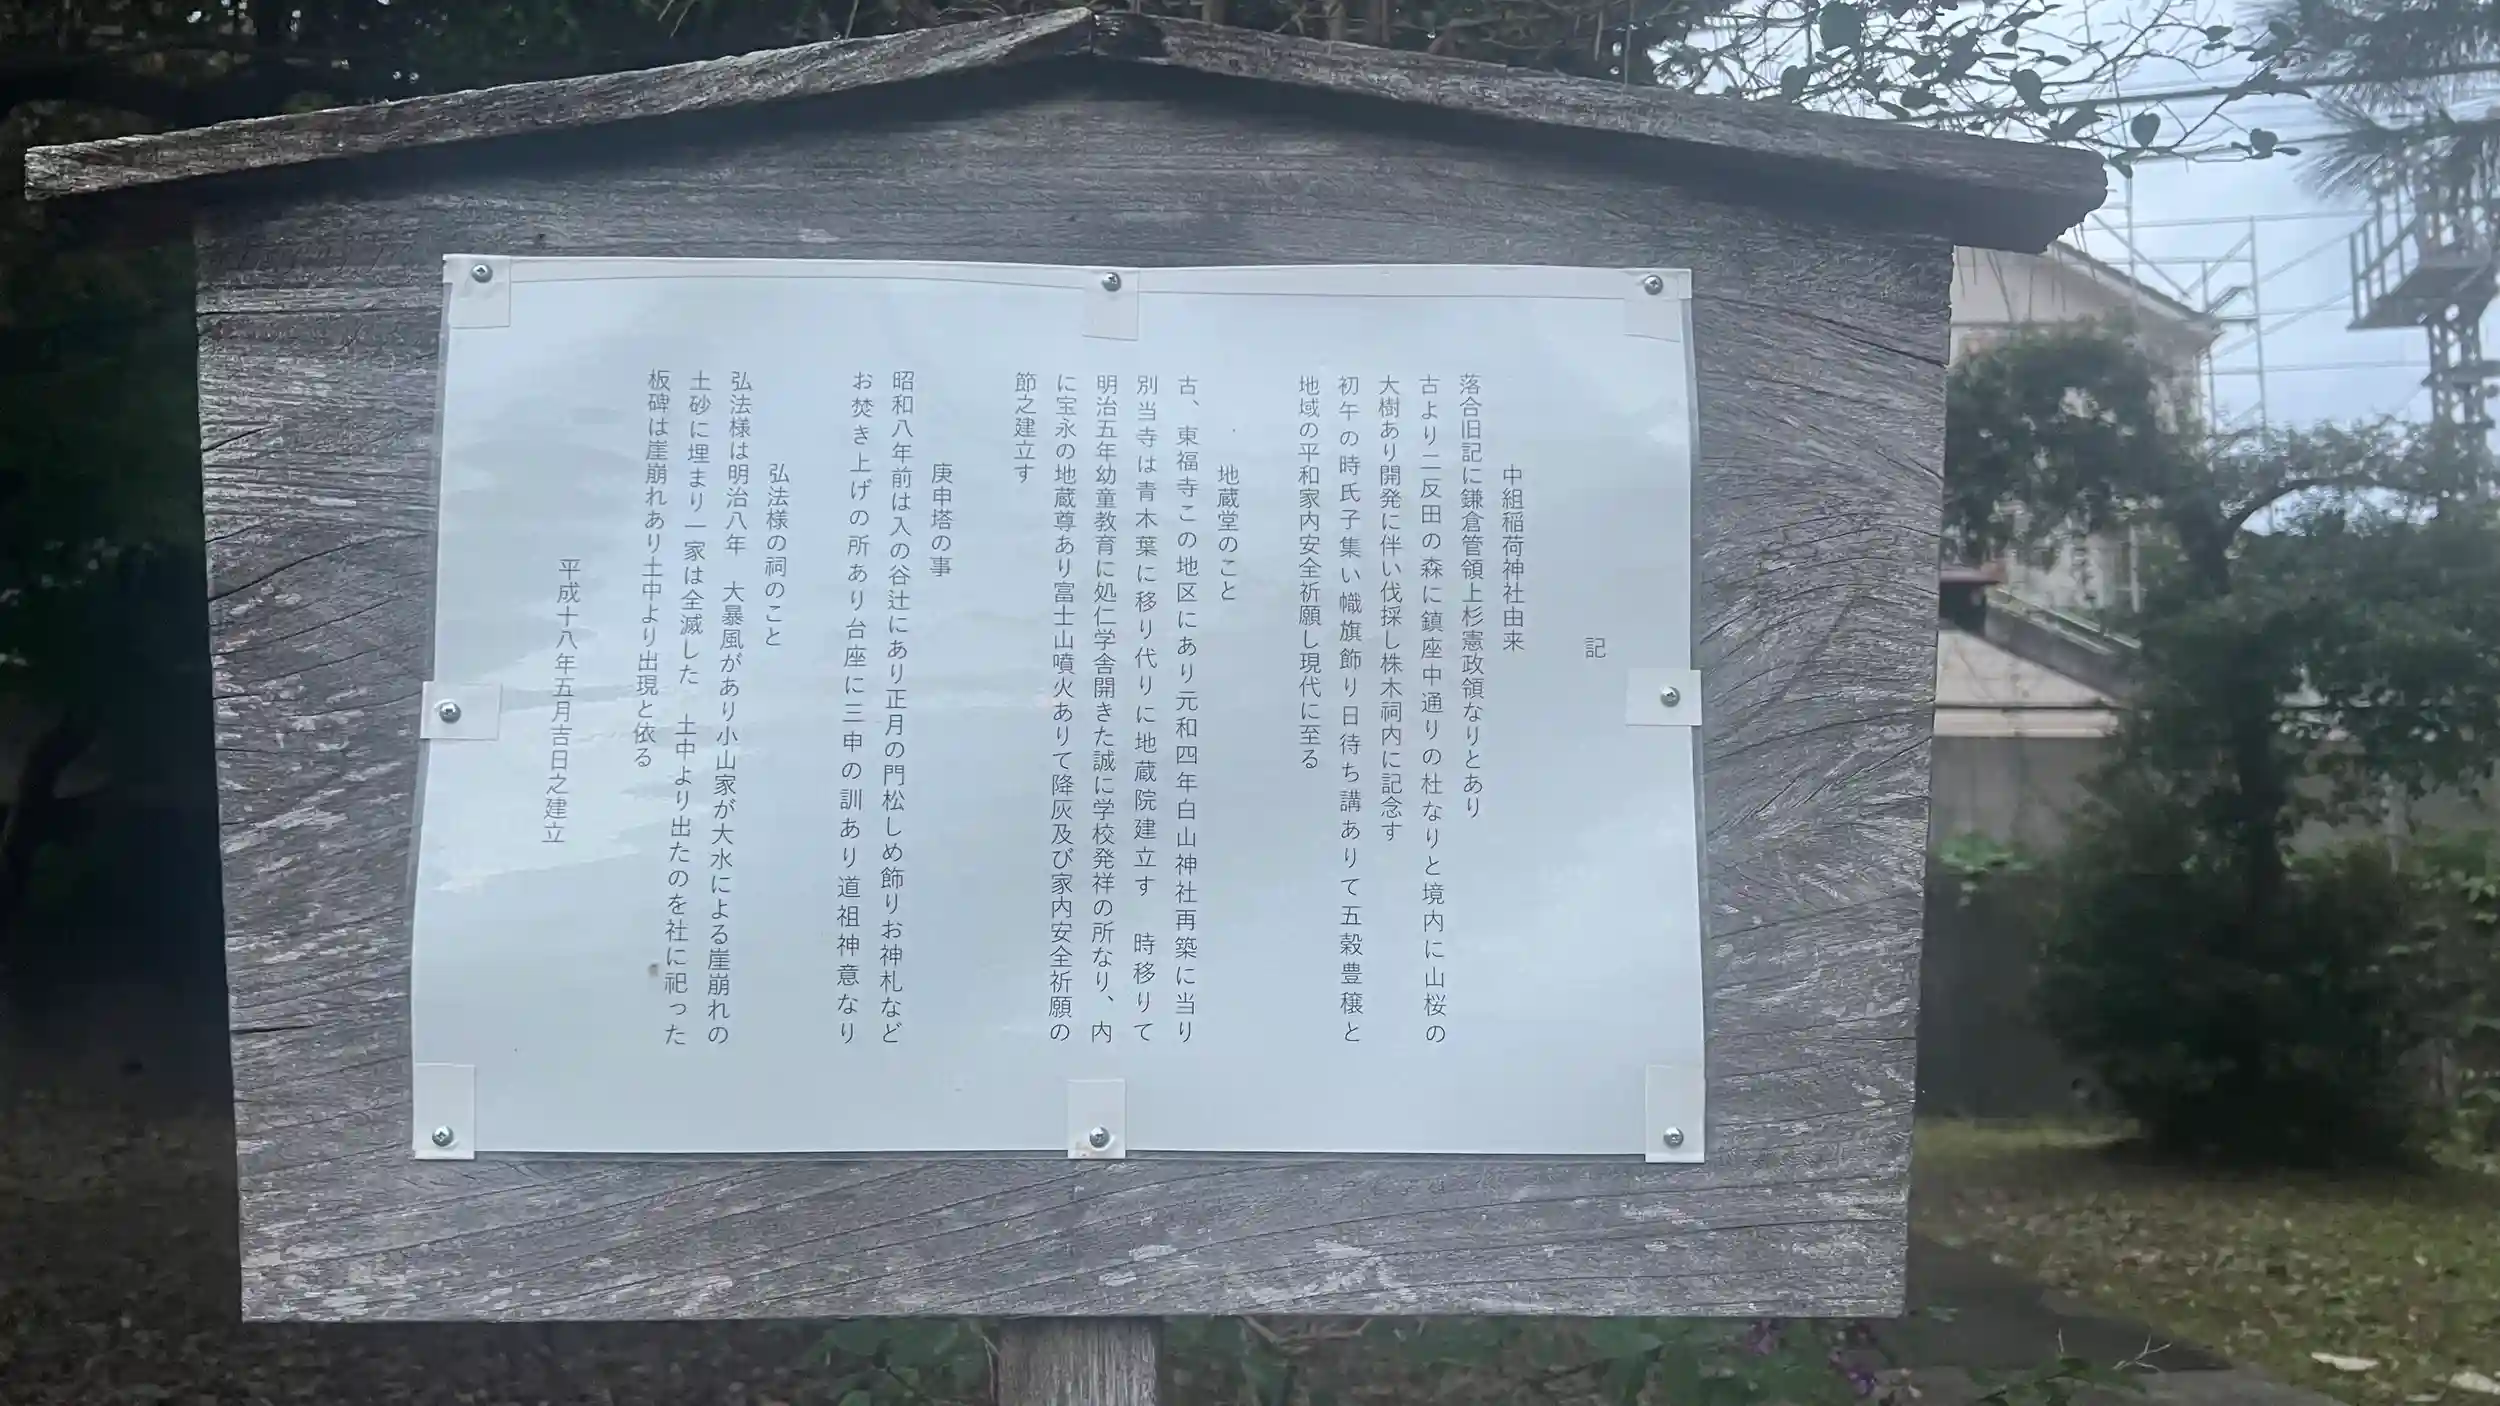 記
中組稲荷神社由来
落合旧記に鎌倉管領上杉憲政領なりとあり
古より二反田の森に鎮座中通りの杜なりと境内に山桜の
大樹あり開発に伴い伐採し株木祠内に記念す
初午の時氏子集い幟旗飾り日待ち講ありて五穀豊穣と
地域の平和家内安全祈願し現代に至る
地蔵堂のこと
古、東福寺この地区にあり元和四年白山神社再築に当り
別当寺は青木葉に移り代りに地蔵院建立す　時移りて
明治五年幼童教育に処仁学舎開きた誠に学校発祥の所なり、内
に宝永の地蔵尊あり富士山噴火ありて降灰及び家内安全祈願の
節之建立す
庚申塔の事
昭和八年前は入の谷辻にあり正月の門松しめ飾りお神札など
お焚き上げの所あり台座に三申の訓あり道祖神意なり
弘法様の祠のこと
弘法様は明治八年　大暴風があり小山家が大水による崖崩れの
土砂に埋まり一家は全滅した　土中より出たのを社に祀った
板碑は崖崩れあり土中より出現と依る
平成十八年五月吉日之建立